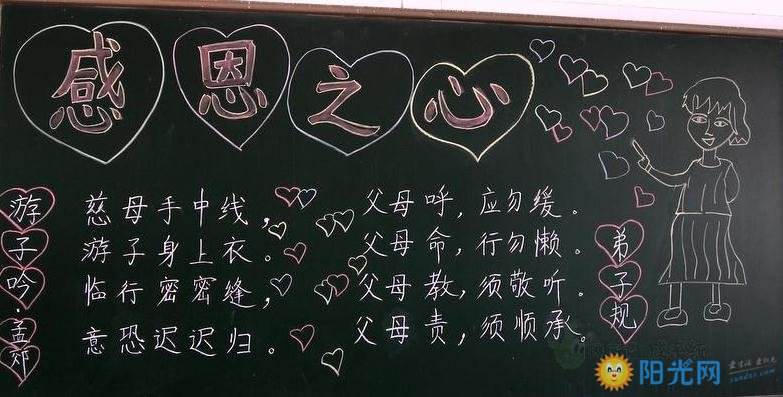 感恩之心
游子吟·孟郊
慈母手中线，
游子身上衣。
临行密密缝，
意恐迟迟归。
父母呼，应勿缓。
父母命，行勿懒。
父母教，须敬听。
父母责，须顺承。
弟子规
阳光网